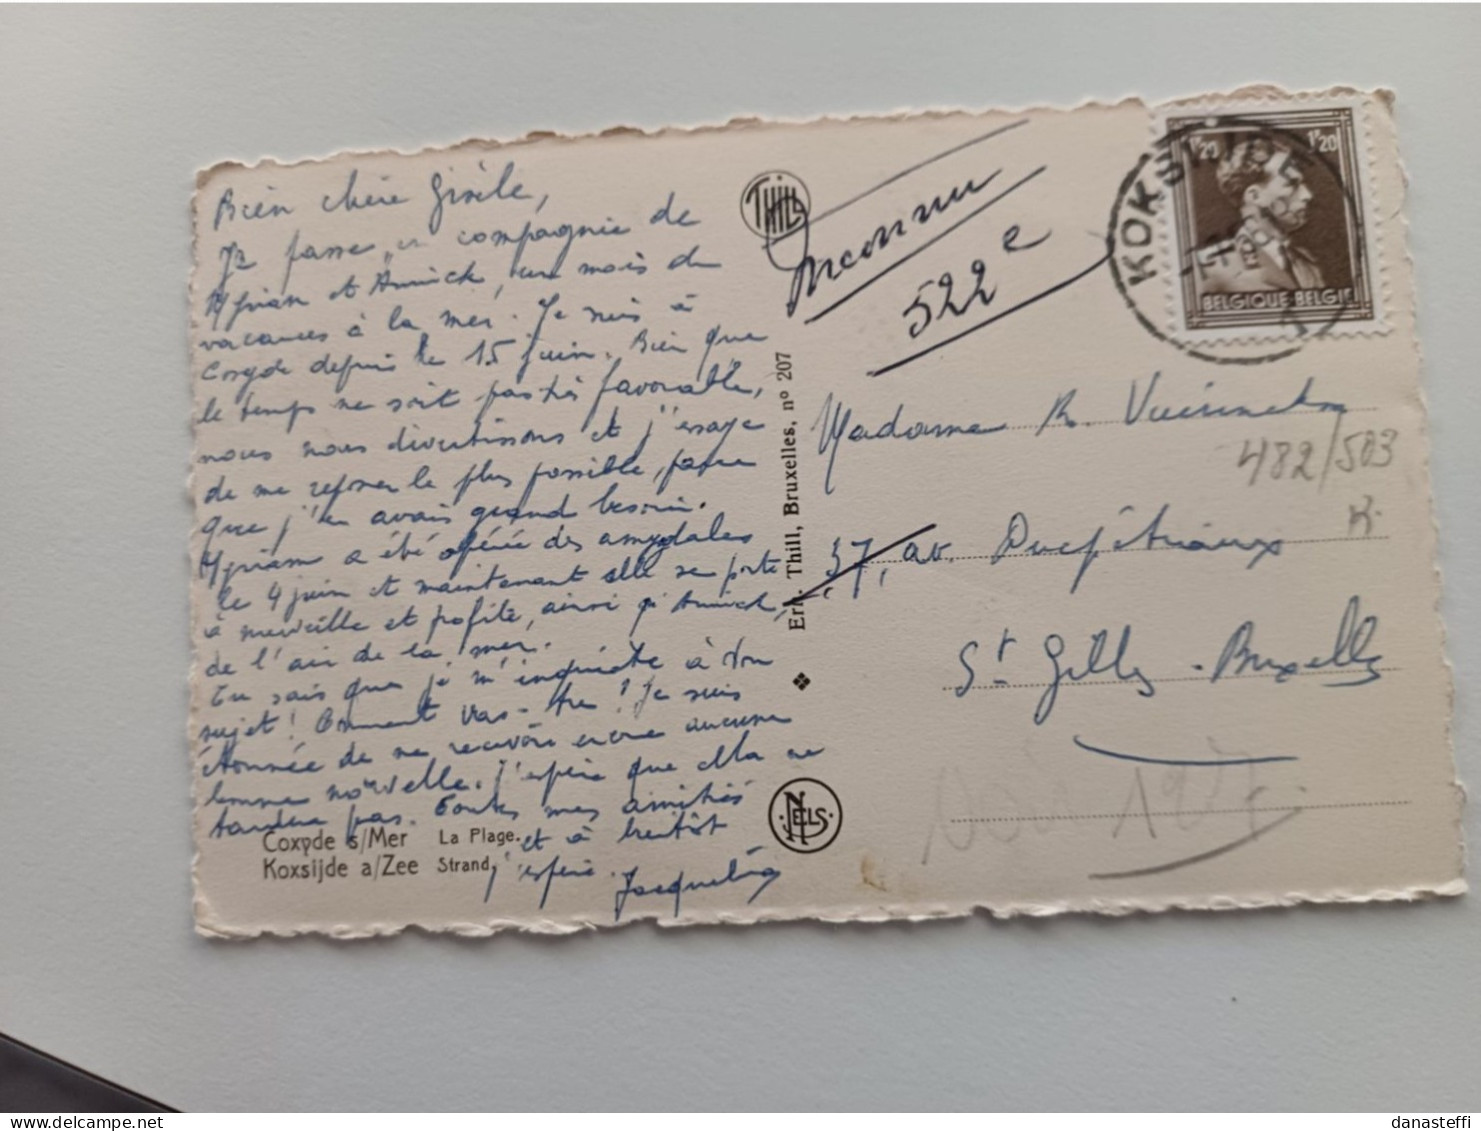 Bien chère Gisèle,
Je passe, en compagnie de
Myriam et Annick, un mois de
vacances à la mer. Je suis à
Coxyde depuis le 15 juin. Bien que
le temps ne soit pas très favorable,
nous nous divertissons et j'essaye
de me reposer le plus possible, parce
que j'en avais grand besoin.
Myriam a été opérée des amygdales
le 4 juin et maintenant elle se porte
à merveille et profite, ainsi qu'Annick,
de l'air de la mer.
Tu sais que je m'inquiète à ton
sujet! Comment vas-tu? Je suis
étonnée de ne recevoir encore aucune
bonne nouvelle. J'espère que cela ne
tardera pas. Toutes mes amitiés
et à bientôt
j'espère. Jacqueline
Coxyde s/Mer La Plage.
Koxsijde a/Zee Strand.
THILL
Ern. Thill, Bruxelles, nº 207
NELS
Inconnu
522 e
KOKSIJDE
1F20 1F20
BELGIQUE-BELGIE
Madame R.
482/503
K.
37, av. Ducpétiaux
St Gilles - Bruxelles
danasteffi